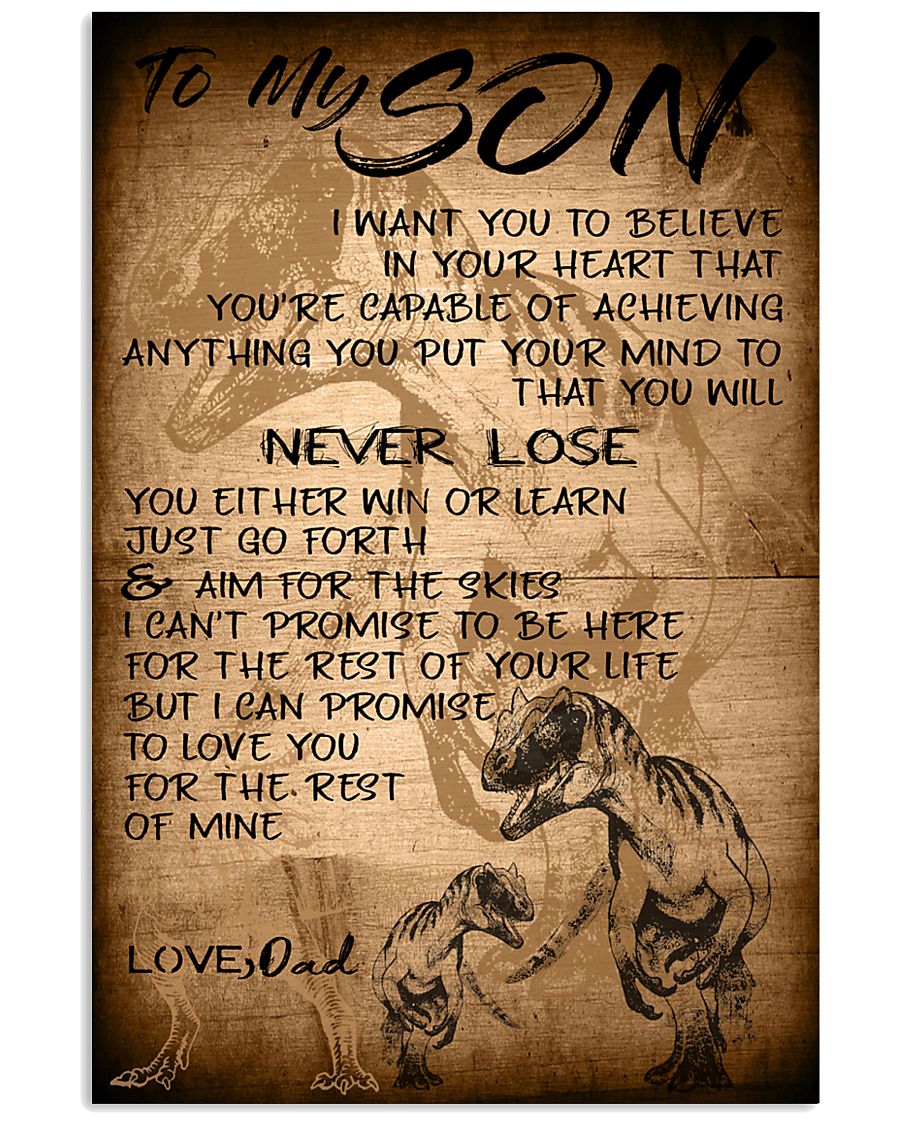 To My SON
I WANT YOU TO BELIEVE
IN YOUR HEART THAT
YOU'RE CAPABLE OF ACHIEVING
ANYTHING YOU PUT YOUR MIND TO
THAT YOU WILL
NEVER LOSE
YOU EITHER WIN OR LEARN
JUST GO FORTH
& AIM FOR THE SKIES
I CAN'T PROMISE TO BE HERE
FOR THE REST OF YOUR LIFE
BUT I CAN PROMISE
TO LOVE YOU
FOR THE REST
OF MINE
LOVE, Dad